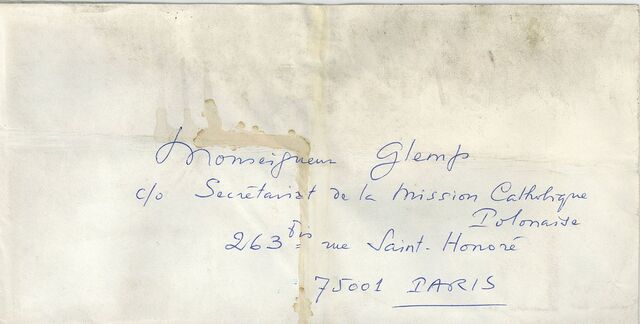 Monseigneur Glemp
c/o Secrétariat de la Mission Catholique
Polonaise
263 bis rue Saint-Honoré
75001 PARIS